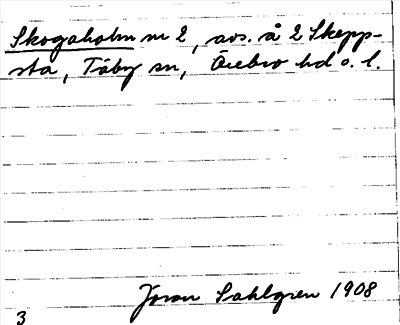 Skogaholm nr 2, avs. å 2 Skepp-
sta, Täby sn, Örebro hd o. l.
Joran Sahlgren 1908
3